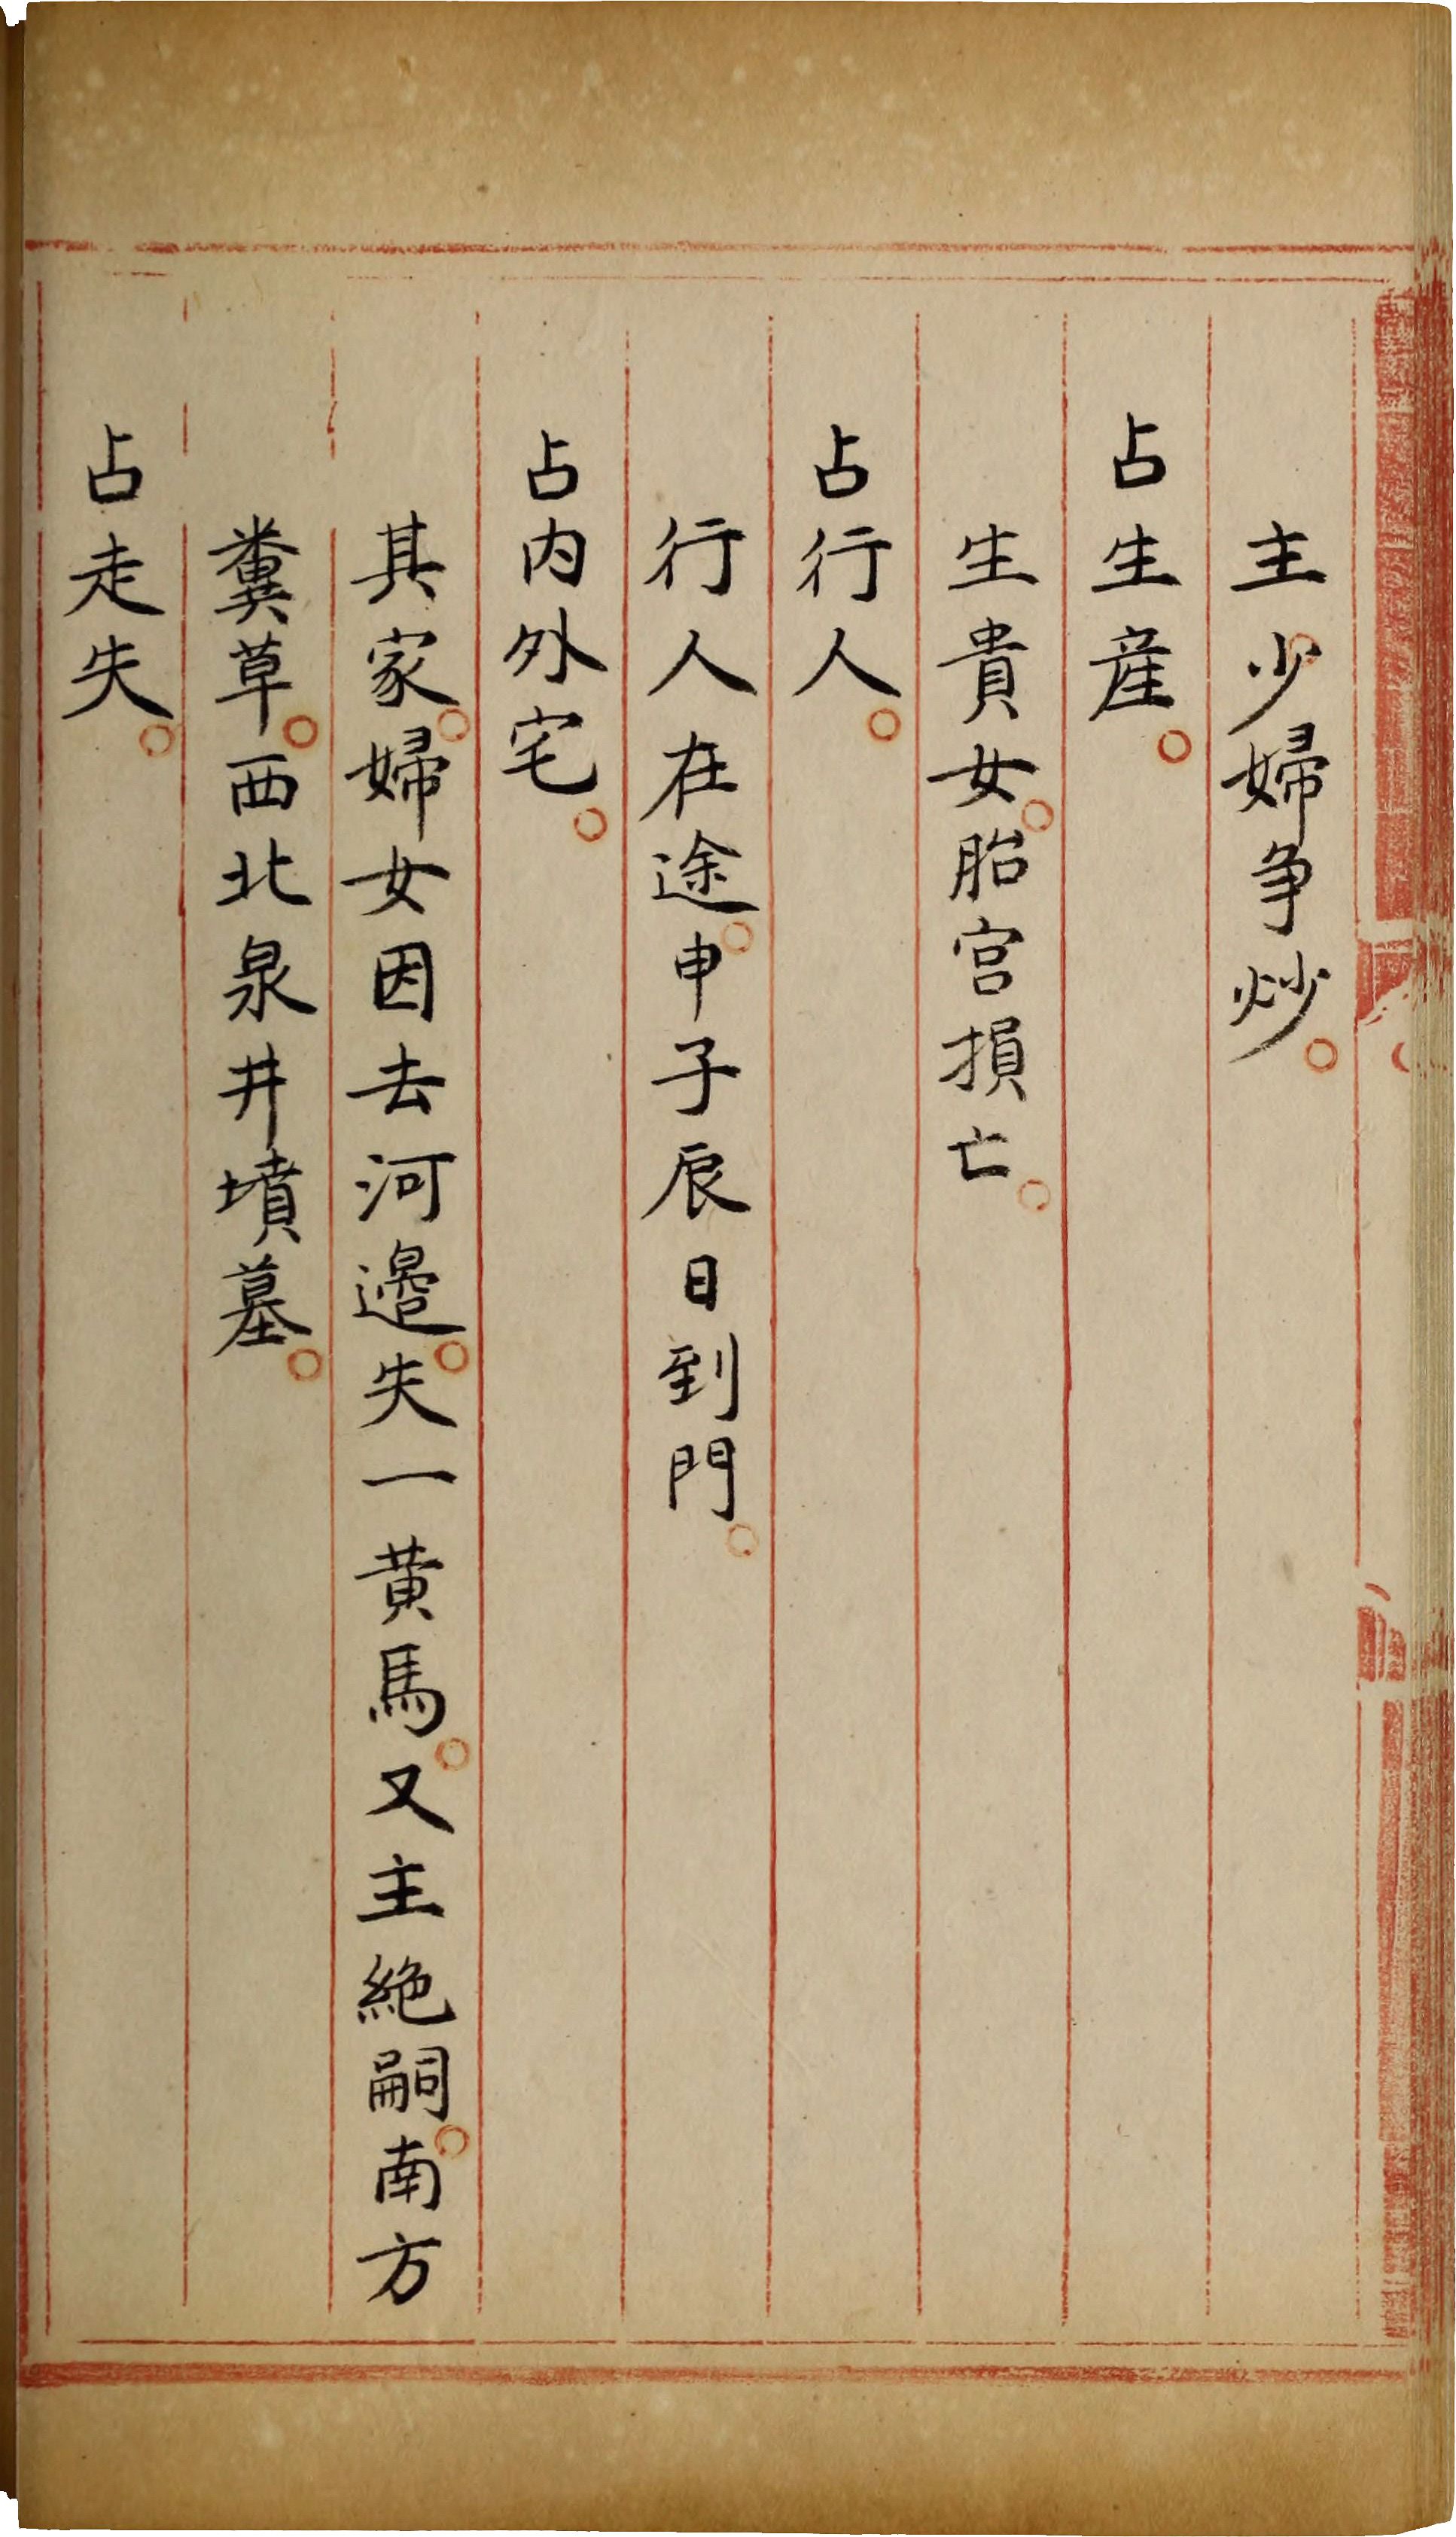 主少婦争炒。
占生産。
生貴女。胎宫損亡。
占行人。
行人在途。申子辰日到門。
占内外宅。
其家。婦女因去河邊。失一黄馬。又主絶嗣。南方
糞草。西北泉井墳墓。
占走失。